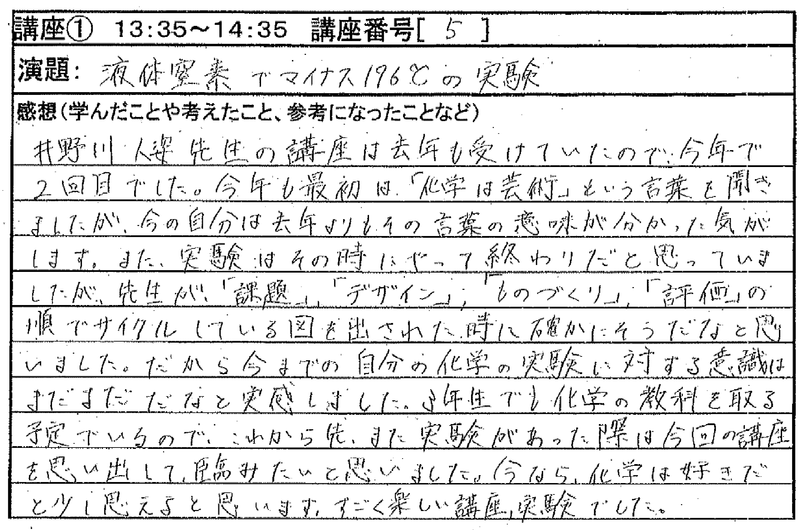 講座① 13:35～14:35 講座番号[ 5 ]
演題： 液体窒素でマイナス196℃の実験
感想（学んだことや考えたこと、参考になったことなど）
井野川人姿先生の講座は去年も受けていたので、今年で
2回目でした。今年も最初は、「化学は芸術」という言葉を聞き
ましたが、今の自分は去年よりもその言葉の意味が分かった気が
します。また、実験はその時にやって終わりだと思っていま
したが、先生が、「課題」、「デザイン」、「ものづくり」、「評価」の
順でサイクルしている図を出された時に確かにそうだなと思
いました。だから今までの自分の化学の実験に対する意識は
まだまだだなと実感しました。3年生でも化学の教科を取る
予定でいるので、これから先、また実験があった際は今回の講座
を思い出して、臨みたいと思いました。今なら、化学は好きだ
と少し思えると思います。すごく楽しい講座、実験でした。